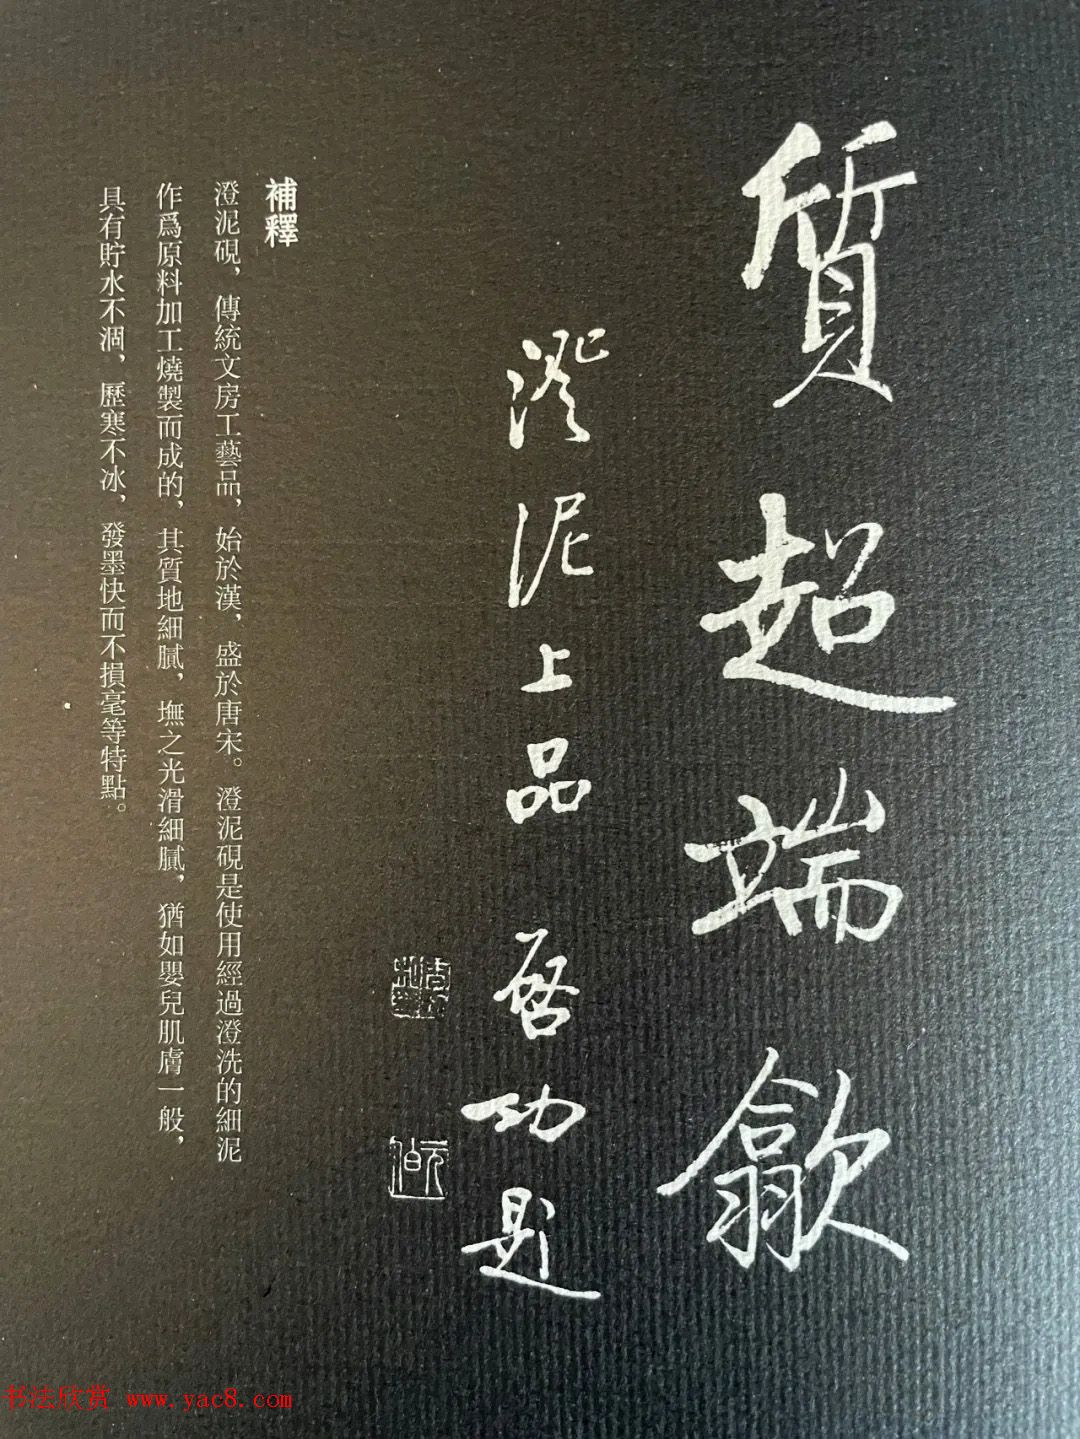 質超端歙
澄泥上品 啓功題
補釋
澄泥硯，傳統文房工藝品，始於漢，盛於唐宋。澄泥硯是使用經過澄洗的細泥
作爲原料加工燒製而成的，其質地細膩，撫之光滑細膩，猶如嬰兒肌膚一般，
具有貯水不涸、歷寒不冰、發墨快而不損毫等特點。
书法欣赏 www.yac8.com